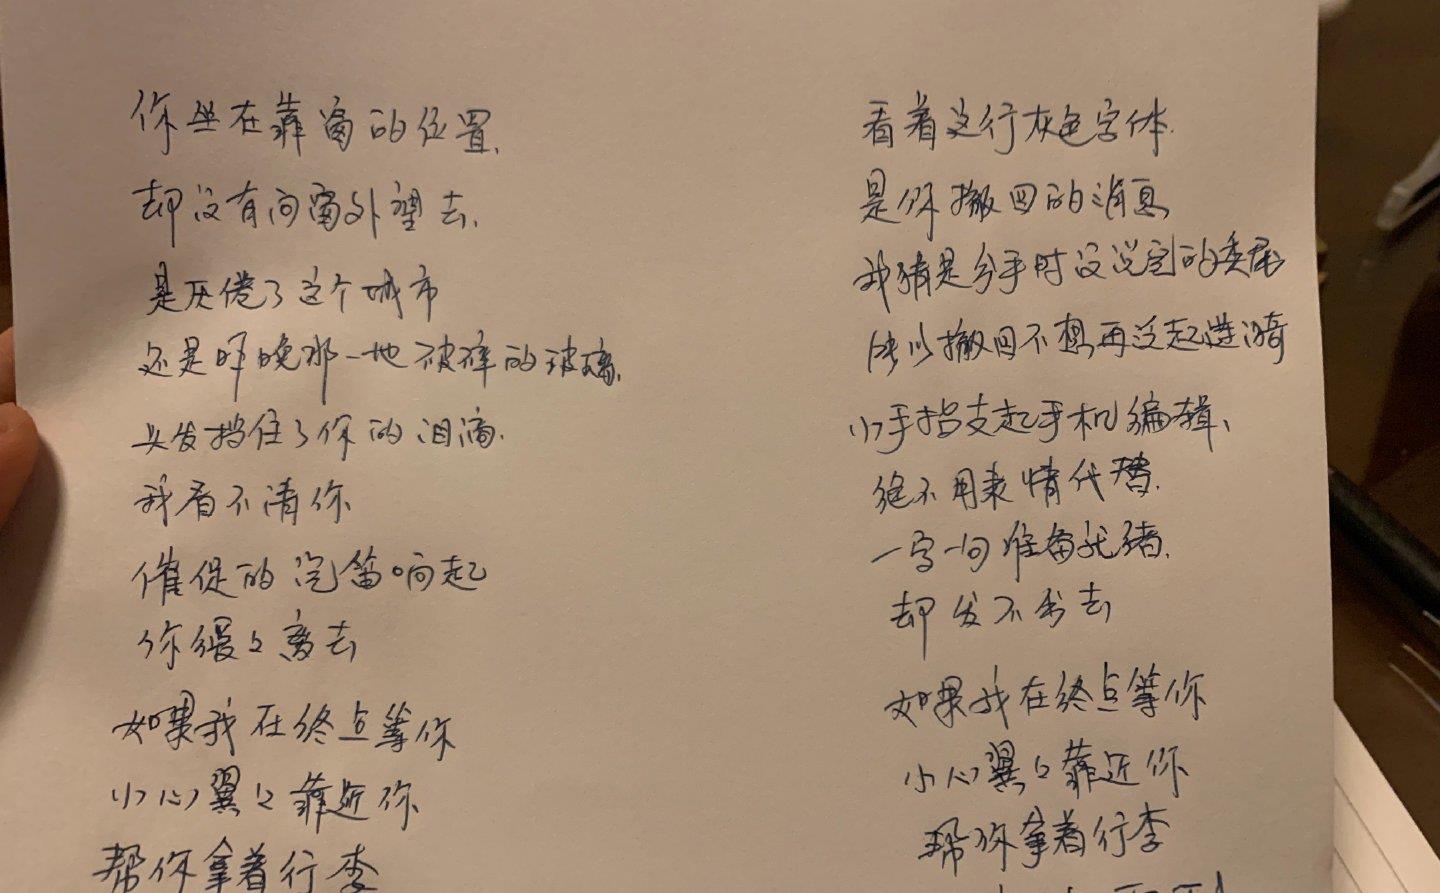 你坐在靠窗的位置.
却没有向窗外望去.
是厌倦了这个城市
还是昨晚那一地破碎的玻璃.
头发挡住了你的泪滴.
我看不清你
催促的汽笛响起
你缓々离去
如果我在终点等你
小心翼々靠近你
帮你拿着行李
看着这行灰色字体.
是你撤回的消息
我猜是分手时没说完的委屈
所以撤回不想再泛起涟漪
小手指支起手机编辑、
绝不用表情代替.
一字一句准备就绪.
却发不出去
如果我在终点等你
小心翼々靠近你
帮你拿着行李